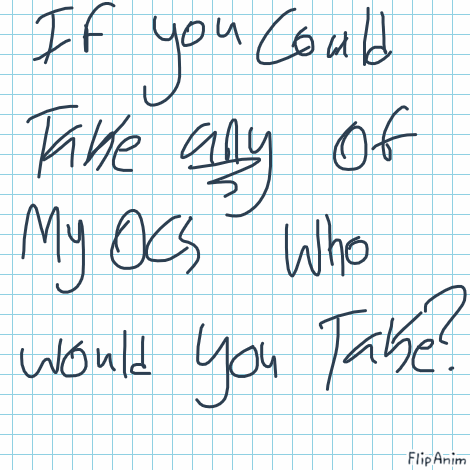 If you Could
Take any of
My OCs Who
would you Take?
FlipAnim